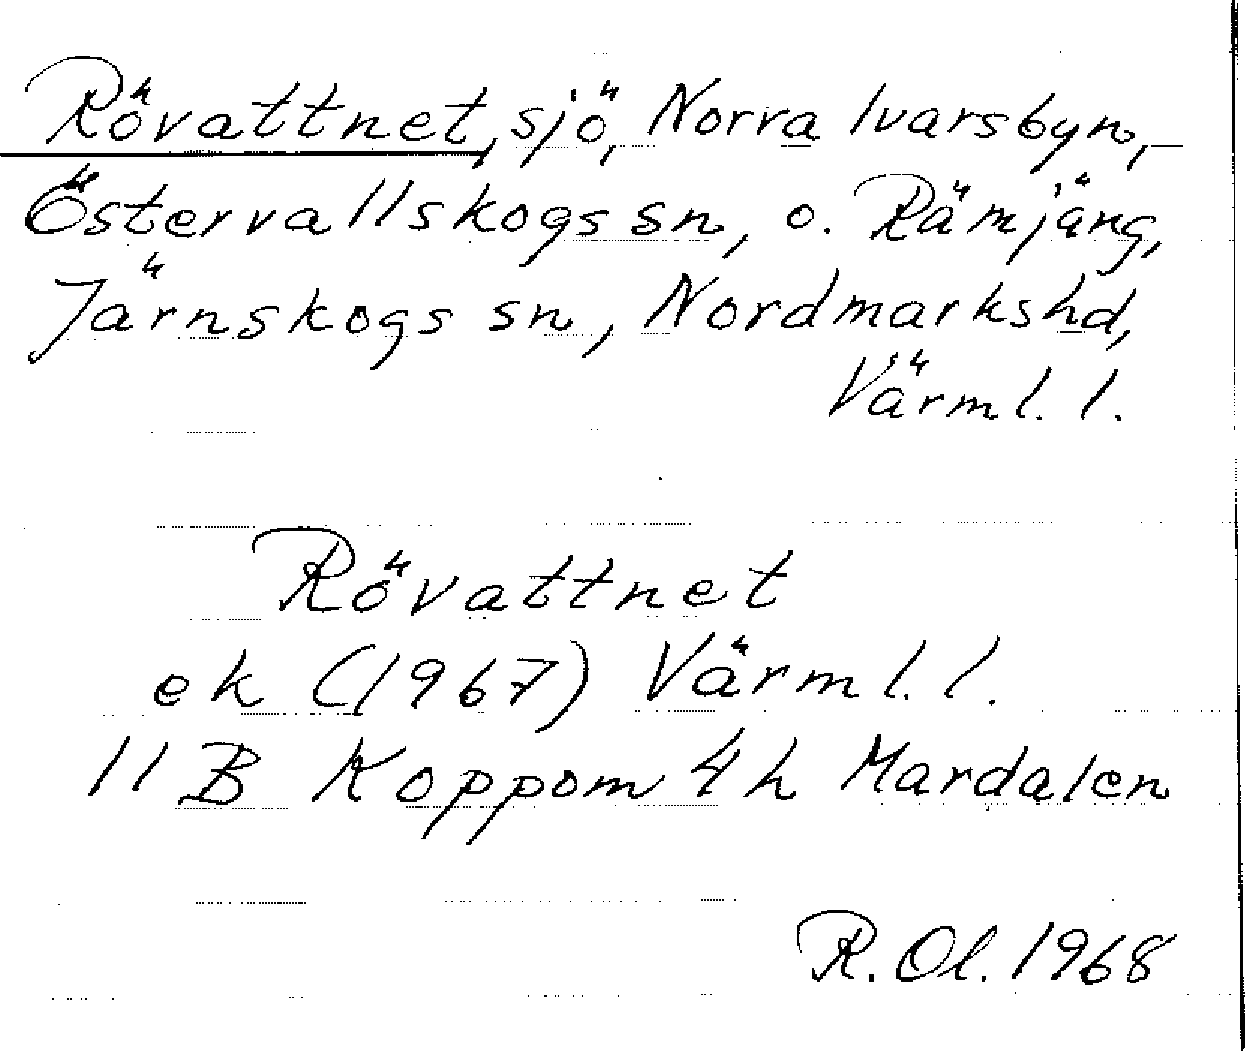 Rövattnet, sjö, Norra Ivarsbyn,
Östervallskogs sn, o. Rämjäng,
Järnskogs sn, Nordmarkshd,
Värml. l.
Rövattnet
ek (1967) Värml. l.
11 B Koppom 4 h Mardalen
R. Ol. 1968